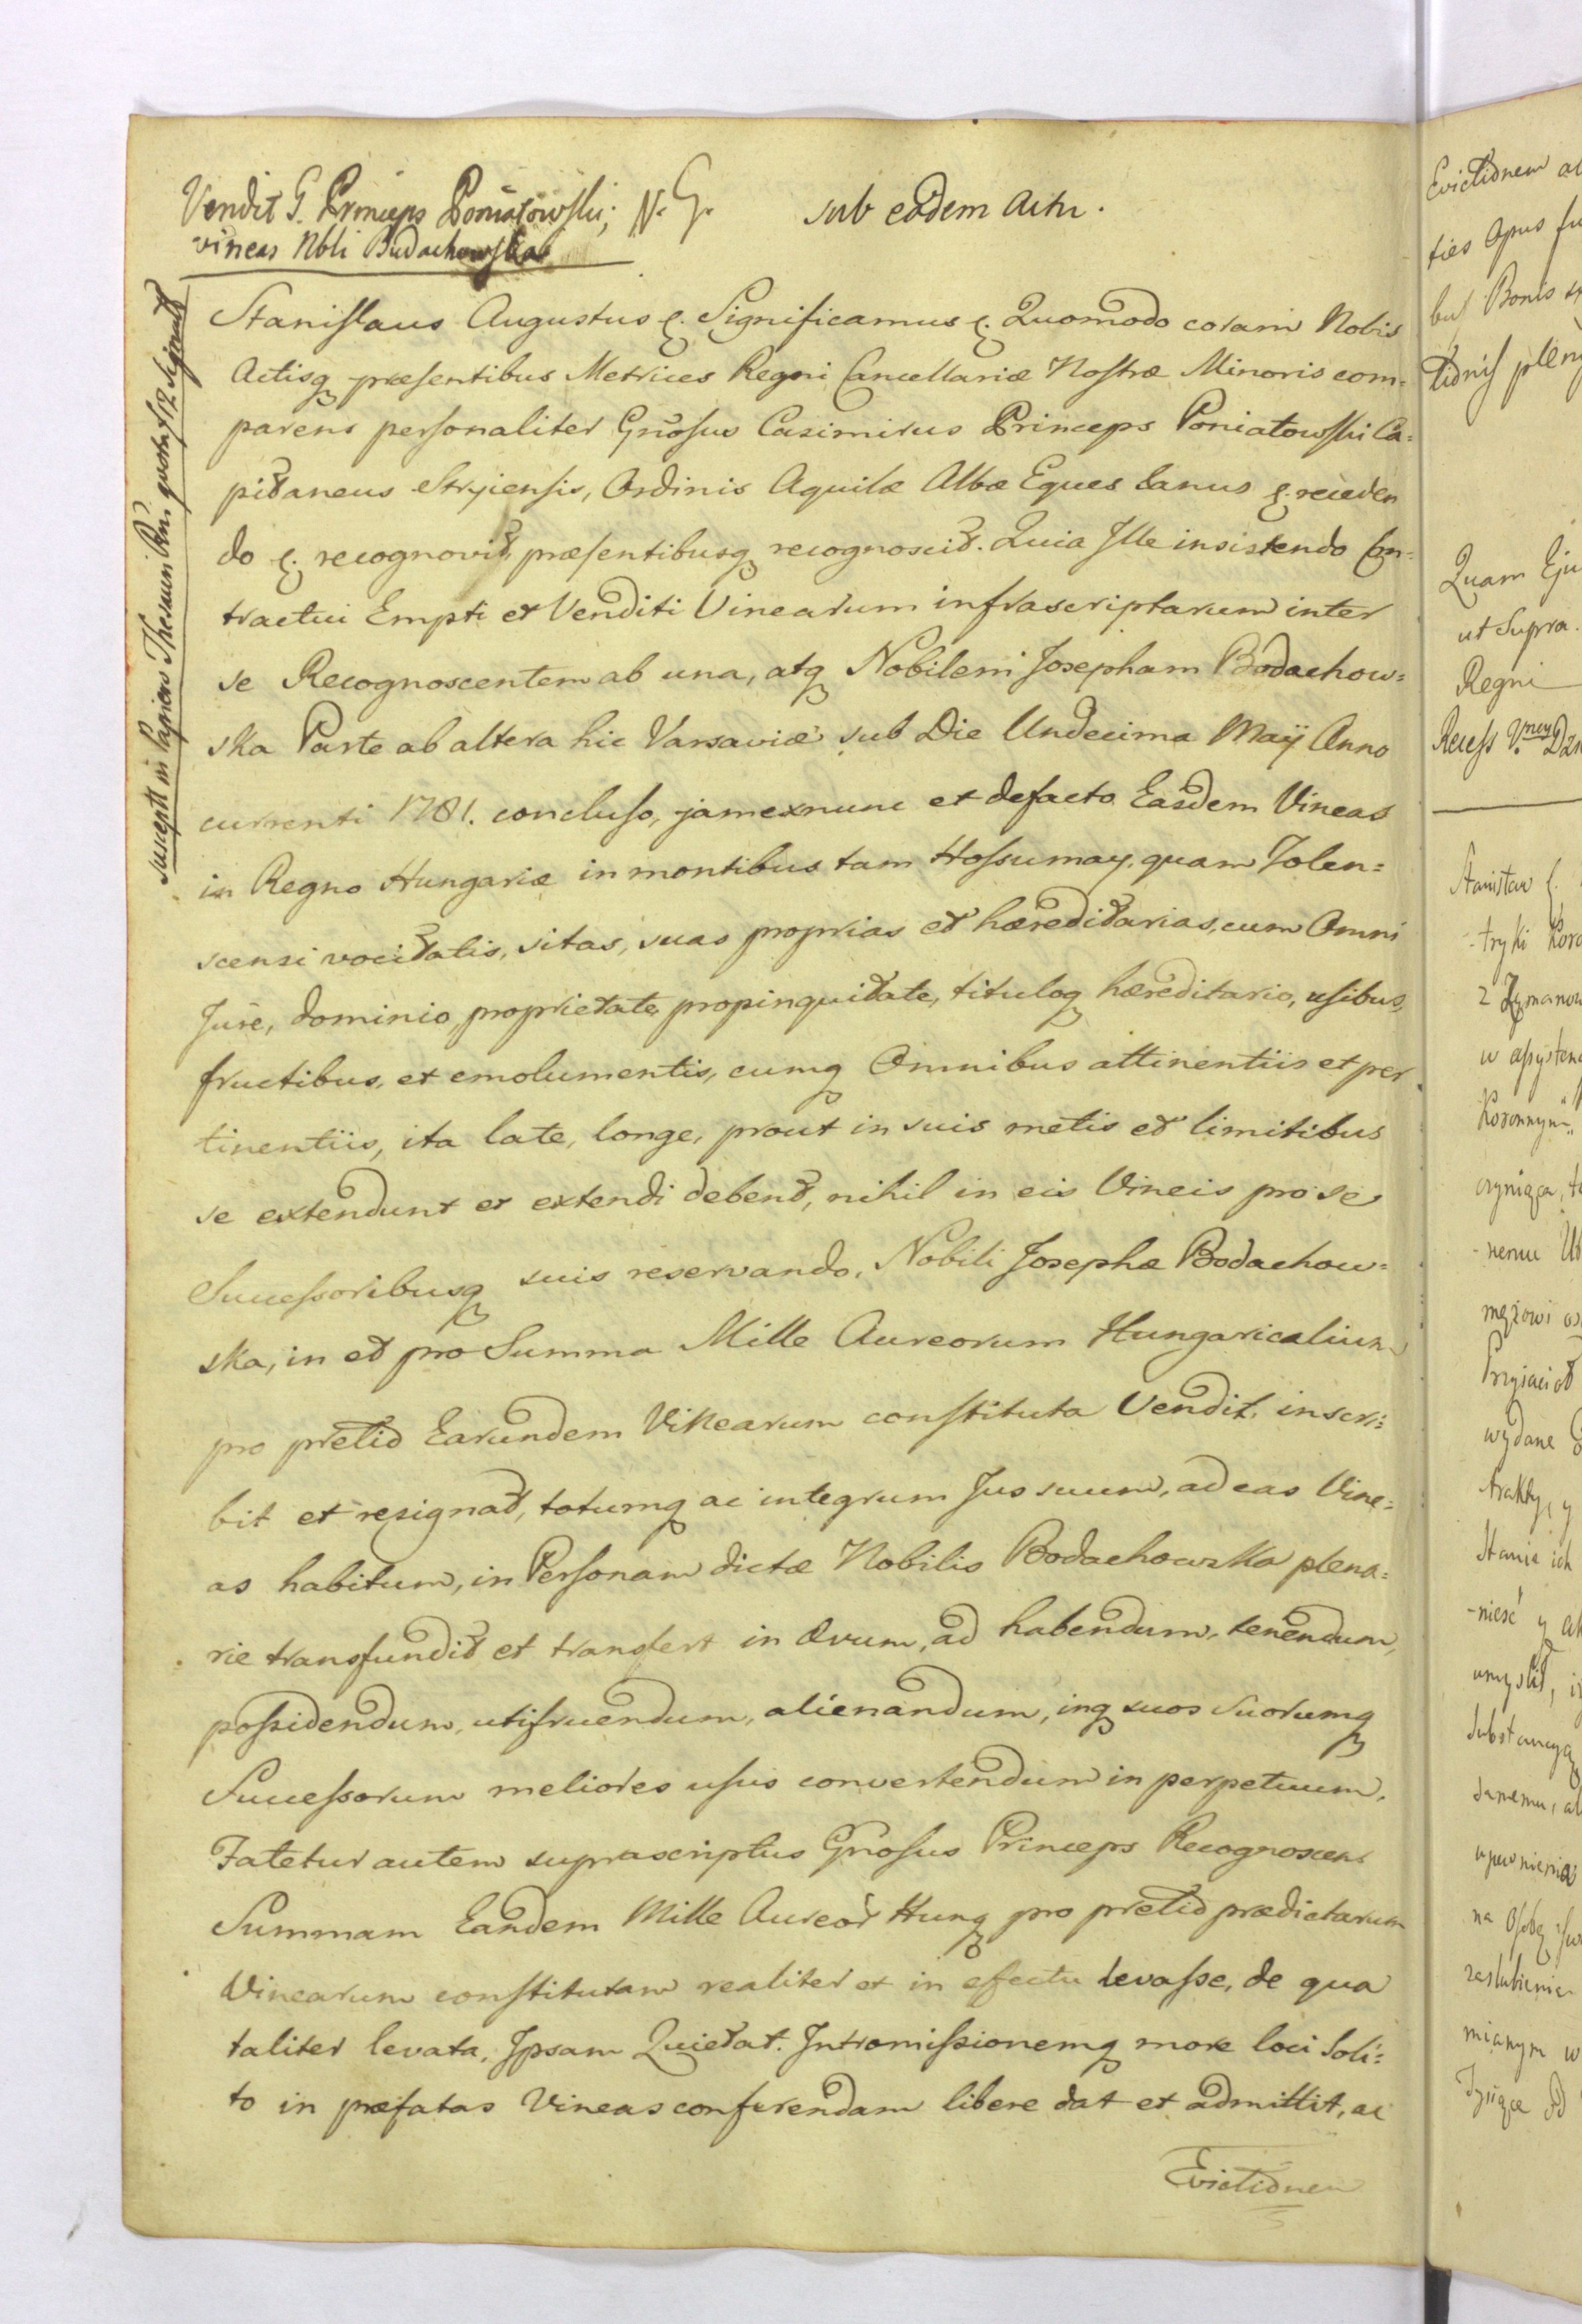 Vendit G. Princeps Poniatowski; N. G. sub eodem Actu.
vineas Nbli Budachowskae
Suscept in Papiero Thesauri Rni quot 12 Signato
Stanislaus Augustus &. Significamus &. Quomodo coram Nobis
Actisq præsentibus Metrices Regni Cancellariæ Nostræ Minoris com=
parens personaliter Gnosus Casimirus Princeps Poniatowski Ca=
pitaneus Stryiensis, Ordinis Aquilæ Albæ Eques Sanus &. receden
do &. recognovit, præsentibusq recognoscit. Quia Ille insistendo Con=
tractui Empti et Venditi Vinearum infrascriptarum inter
se Recognoscentem ab una, atq Nobilem Josepham Bodachow=
ska Parte ab altera hic Varsaviæ sub Die Undecima Maÿ Anno
currenti 1781. concluso, jamexnunc et defacto Easdem Vineas
in Regno Hungariæ in montibus tam Hossumay, quam Tolen=
scensi vocitatis, sitas, suas proprias et hæreditarias, cum Omni
Jure, dominio, proprietate, propinquitate, tituloq hæreditario, usibus,
fructibus, et emolumentis, cumq Omnibus attinentiis et per
tinentiis, ita late, longe, prout in suis metis et limitibus
se extendunt et extendi debent, nihil in eis Vineis pro se
Successoribusq suis reservando, Nobili Josephæ Bodachow=
ska, in et pro Summa Mille Aureorum Hungaricalium
pro pretio Earundem Vinearum constituta Vendit, inscri=
bit et resignat, totumq ac integrum Jus suum, ad eas Vine=
as habitum, in Personam dictæ Nobilis Bodachowska plena=
rie transfundit et transfert in Ævum, ad habendum, tenendum,
possidendum, utifruendum, alienandum, inq suos Suorumq
Successorum meliores usus convertendum in perpetuum.
Fatetur autem suprascriptus Gnosus Princeps Recognoscens
Summam Eandem Mille Aureor Hung pro pretio prædictarum
Vinearum constitutam realiter et in efectu levasse, de qua
taliter levata, Ipsam Quietat. Intromissionemq more loci Soli=
to in præfatas Vineas conferendam libere dat et admittit, ac
Evictionem
Evictionem
ties Opus
bus Bonis
Quam Eju
ut Supra.
Regni
Recess
Stanisław &.
tryki Koro
z
w assystenc
Koronnym
mężowi
Przyjaciół
wydane
trakty, y
Stanie ich
-nieść y
umyslił,
Substancyą
na Osobę